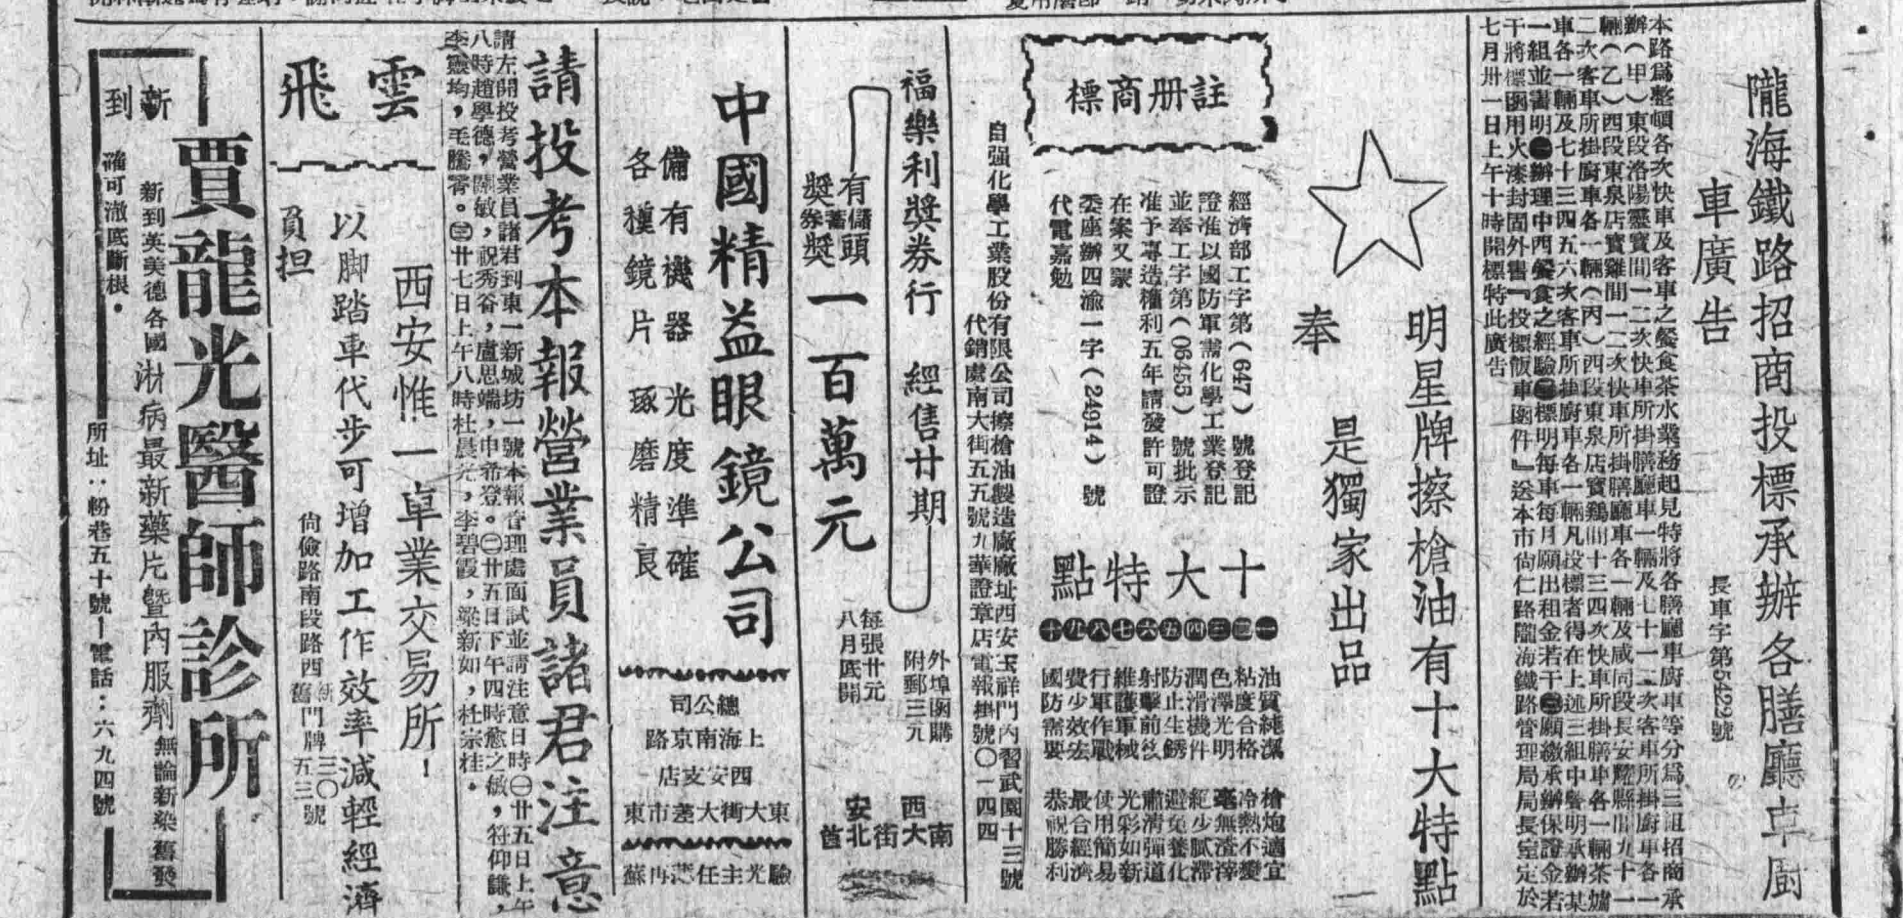 隴海鐵路招商投標承辦各膳廳車廚
車廣告
長車字第5422號
本路爲整頓各次快車及客車之餐食茶水業務起見特將各膳廳車廚車等分爲三組招商承
辦(甲)東段洛陽靈寶間一二次快車所掛膳廳車一輛及七十一二次客車所掛廚車各一
輛(乙)西段東泉店寶雞間一二次快車所掛膳廳車各一輛及咸同段長安耀縣間九十一
二次客車所掛廚車各一輛(丙)西段東泉店寶鷄間十三四次快車所掛膳車各一輛茶爐
車各一輛及七十三四五六次客車所掛廚車各一輛凡投標者得在上述三組中聲明承辦某
一組並書明㊀辦理中西餐食之經驗㊁標明每車每月願出租金若干㊂願繳承辦保證金若
干將標函用火漆封固外書『投標飯車函件』送本市尙仁路隴海鐵路管理局局長室定於
七月卅一日上午十時開標特此廣告
明星牌擦槍油有十大特點
是獨家出品
奉
註册商標
經濟部工字第(647)號登記
證准以國防軍需化學工業登記
並奉工字第(06455)號批示
准予專造權利五年請發許可證
在案又蒙
委座辦四渝一字(24914)號
代電嘉勉
十大特點
㊀油質純潔 槍炮適宜
㊁粘度合格 冷熱不變
㊂色澤光明 毫無渣滓
㊃潤滑機件 絕少膩滯
㊄防止生銹 避免養化
㊅射擊前後 肅清彈道
㊆維護軍械 光彩如新
㊇行軍作戰 使用簡易
㊈費少效宏 最合經濟
㊉國防需要 恭祝勝利
自强化學工業股份有限公司擦槍油製造廠廠址西安玉祥門內習武園十三號
代銷處南大街五五號九華證章店電報掛號〇一四四
福樂利獎券行 經售廿期
有儲蓄券頭獎獎一百萬元
每張廿元
八月底開
外埠函購
附郵三元
西安
南大街北首
中國精益眼鏡公司
備有機器 光度準確
各種鏡片 琢磨精良
總公司
上海南京路
西安支店
東大街大差市東
驗光主任范再蘇
請投考本報營業員諸君注意
請左開投考營業員諸君到東一新城坊一號本報管理處面試並請注意日時㊀廿五日上午
八時趙學德,關敏,祝秀容,盧思端,申希登。㊁廿五日下午四時愈之敏,符仰謙,
李靈均,毛騰霄。㊂廿七日上午八時杜晨光,李碧霞,梁新如,杜宗桂.
雲飛
西安惟一車業交易所!
以脚踏車代步可增加工作效率減輕經濟
負担
尙儉路南段路西新舊門牌三〇五三號
新到
賈龍光醫師診所
新到英美德各國淋病最新藥片曁內服劑無論新染舊發
確可澈底斷根.
所址:粉巷五十號—電話:六九四號